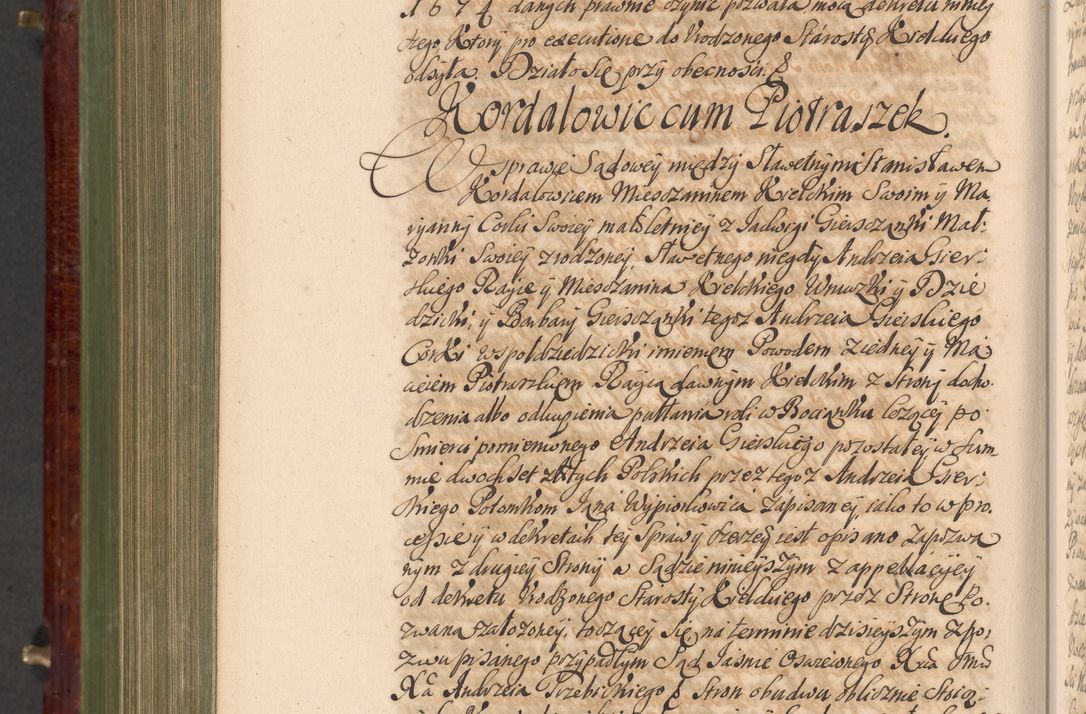 1674 danych prawnie czynic pozwala mocą dekretu niniey
szego, Ktory pro executione do Urodzonego Starosty Kielckiego
odsyła. Działo się przy obecnosci. &
Kordalowic cum Piotraszek.
W sprawie Sądowey między Sławetnymi Stanisławem
Kordalowicem Miesczaninem Kielckim Swoim y Ma,
ryanny Corki Swoiey małoletniey z Jadwigi Giersczanki Mał,
zonki Swoiey zrodzoney, Sławetnego niegdy Andrzeia Gier,
skiego Rayce y Miesczanina Kielckiego Wnuczki y Dzie
dziczki, y Barbary Giersczanki tegoz Andrzeia Gierskiego
Corki wspołdziedziczki imieniem Powodem z iedney y Ma
cieiem Piotraszkiem Raycą dawnym Kielckim z Strony docho,
dzenia albo odkupienia pułłania roli w Bocianku lezącey po
Smierci pomienionego Andrzeia Gierskiego pozostałey w Sum
mie dwochset złotych Polskich przez tegoz Andrzeia Gier,
skiego Potomkom Jana Wypiorkowica zapisaney, iako to w pro,
cessie y w dekretach tey Sprawy szerzey iest opisano Zapozwa
nym z drugiey Strony w Sądzie ninieyszym z appellacyey
od dekretu Urodzonego Starosty Kielckiego przez Stronę Po,
zwaną załozoney, toczącey się, na terminie dzisieyszym z po,
zwu pisanego przypadłym Sąd Jasnie Oswieconego Xcia Jmci
Xa Andrzeia Trzebickiego & Stron obudwu oblicznie Stoią,